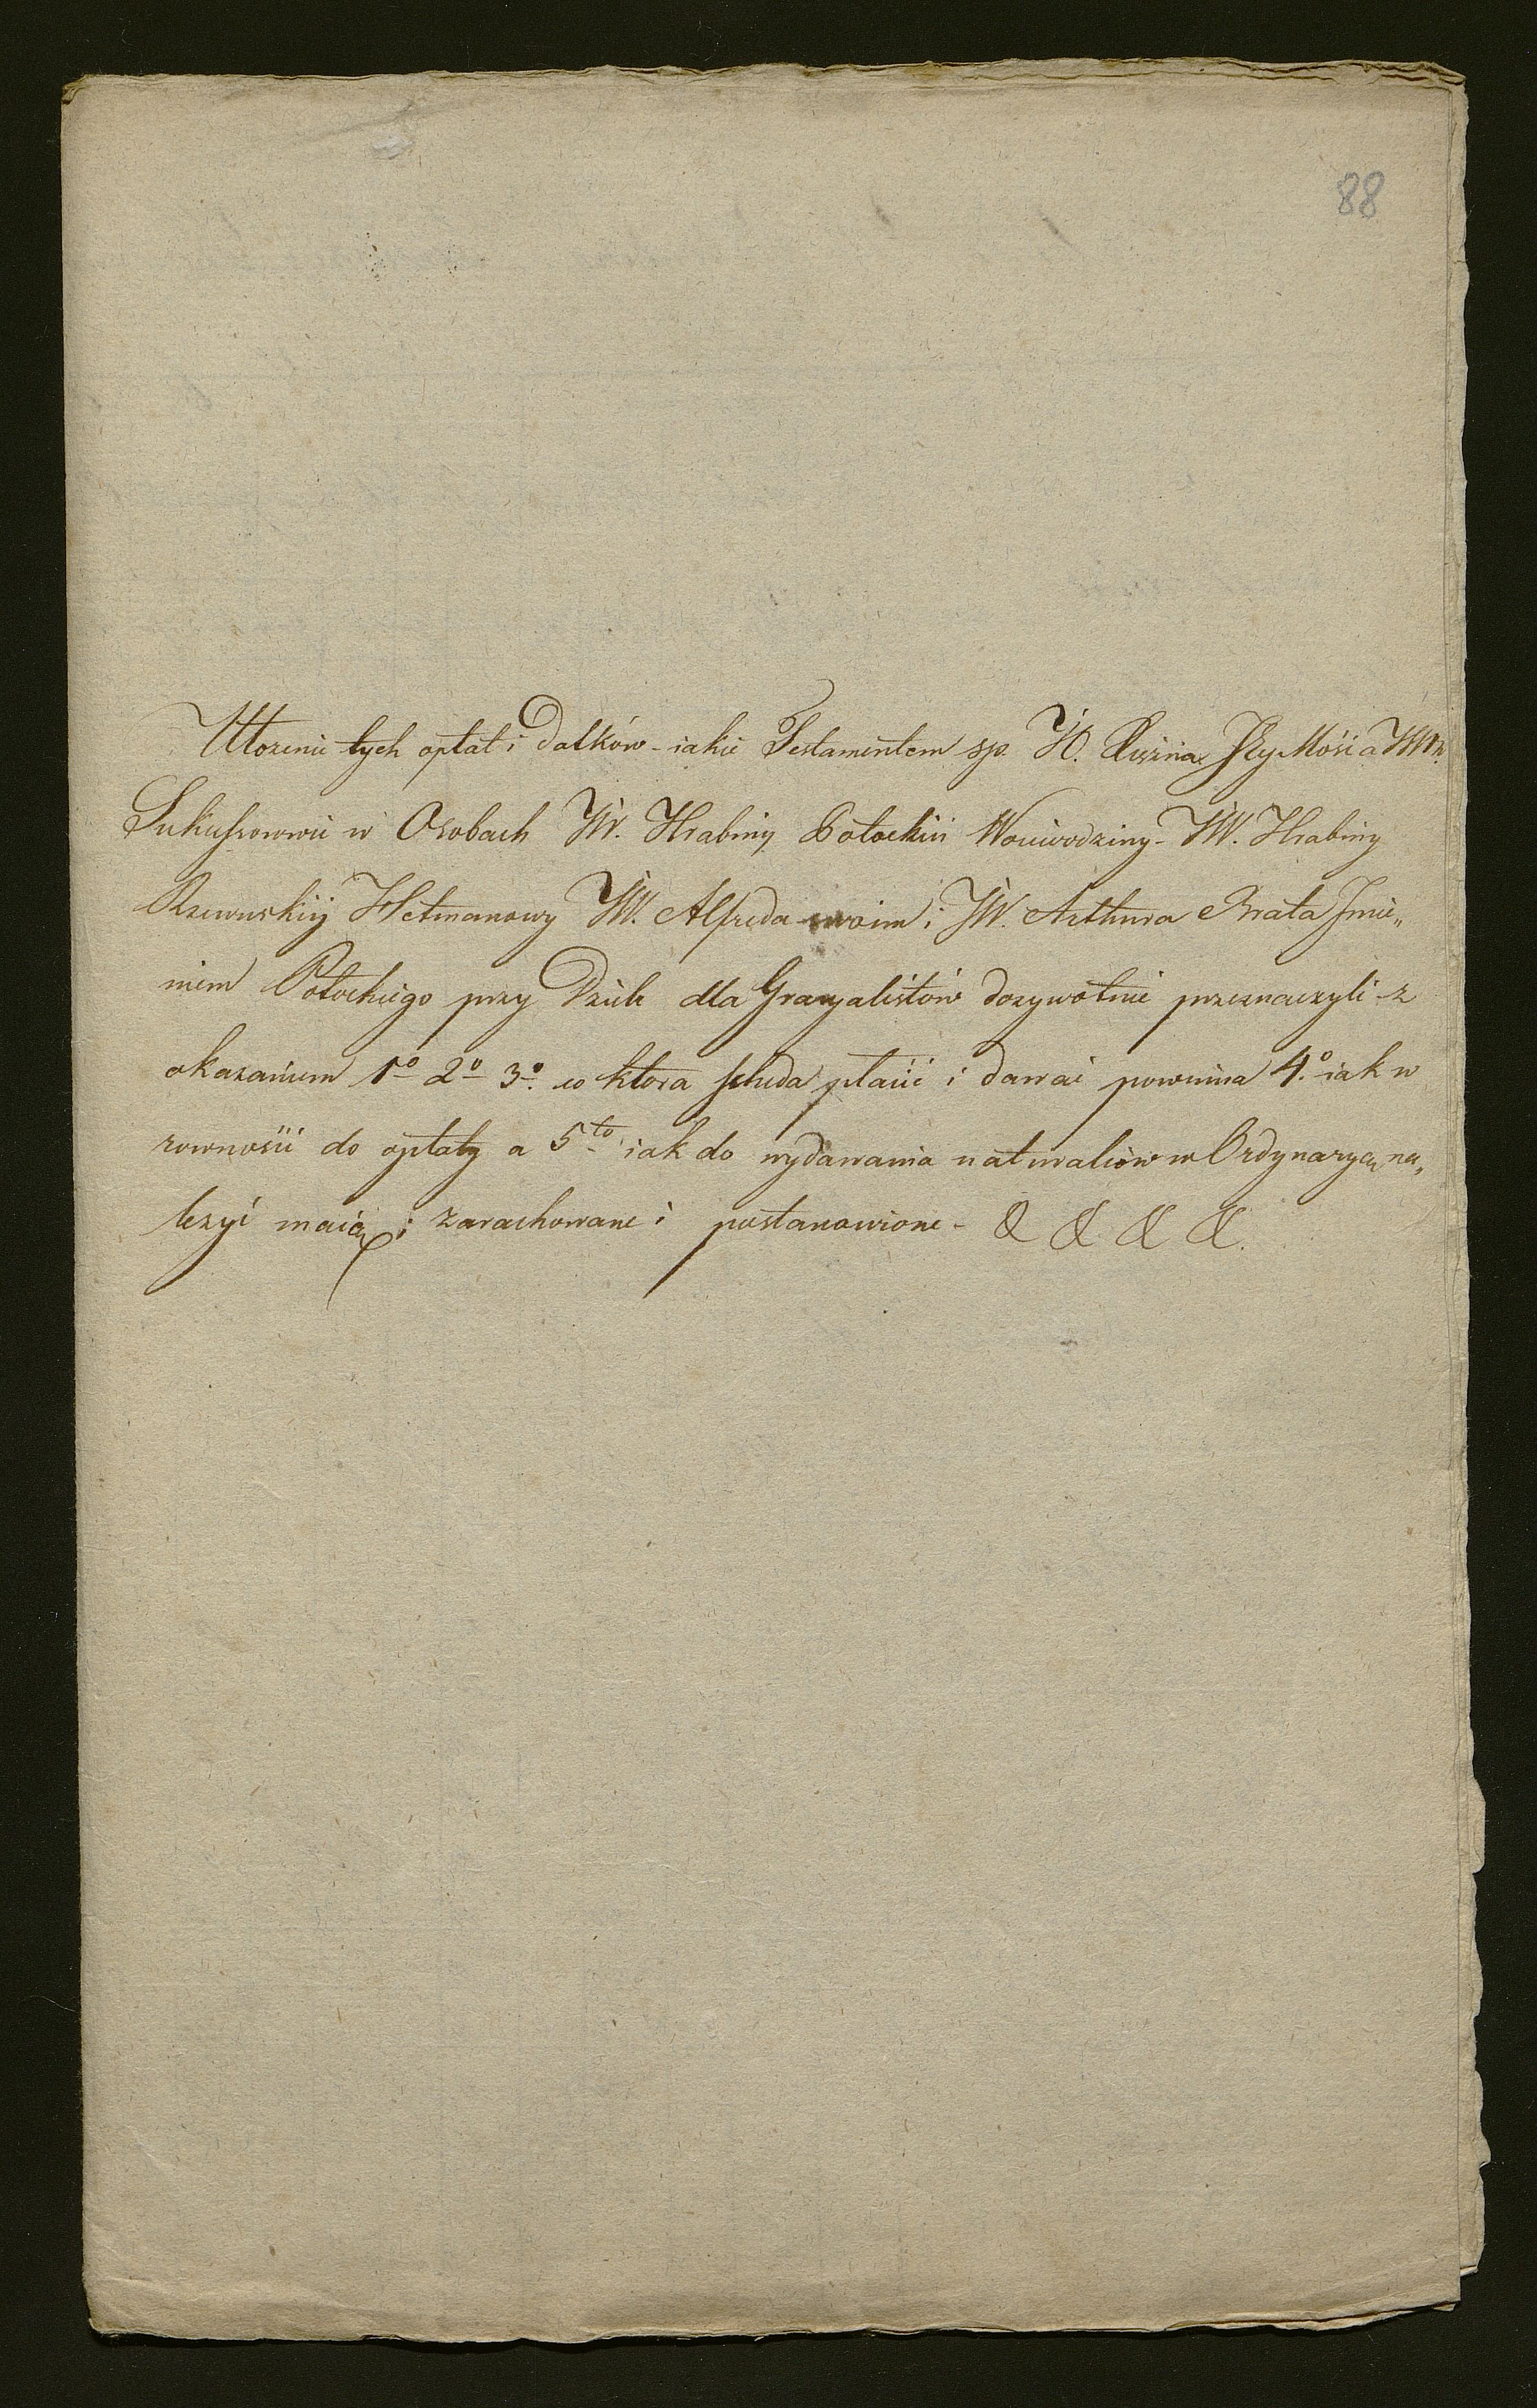 88
Ułozenie tych opłat i Datków - iakie Testamentem sp. JO. Xiężna JEy Mość a JWW.
Sukessorowie w Osobach JW. Hrabiny Potockiei Woiewodziny - JW. Hrabiny
Rzewuskiij Hetmanowy JW. Alfreda swoim i JW. Arthura Brata Jmie„
niem Potockiego przy Dziele dla Gracyalistów dozywotnie przeznaczyli - z
okazaniem 1o 2o 3o co ktora scheda płacić i dawać powinna 4.o iak w
rowności do opłaty a 5to iak do wydawania naturaliów w Ordynaryą na„
lezyć maią i zarachowane i postanowione - & & & &.